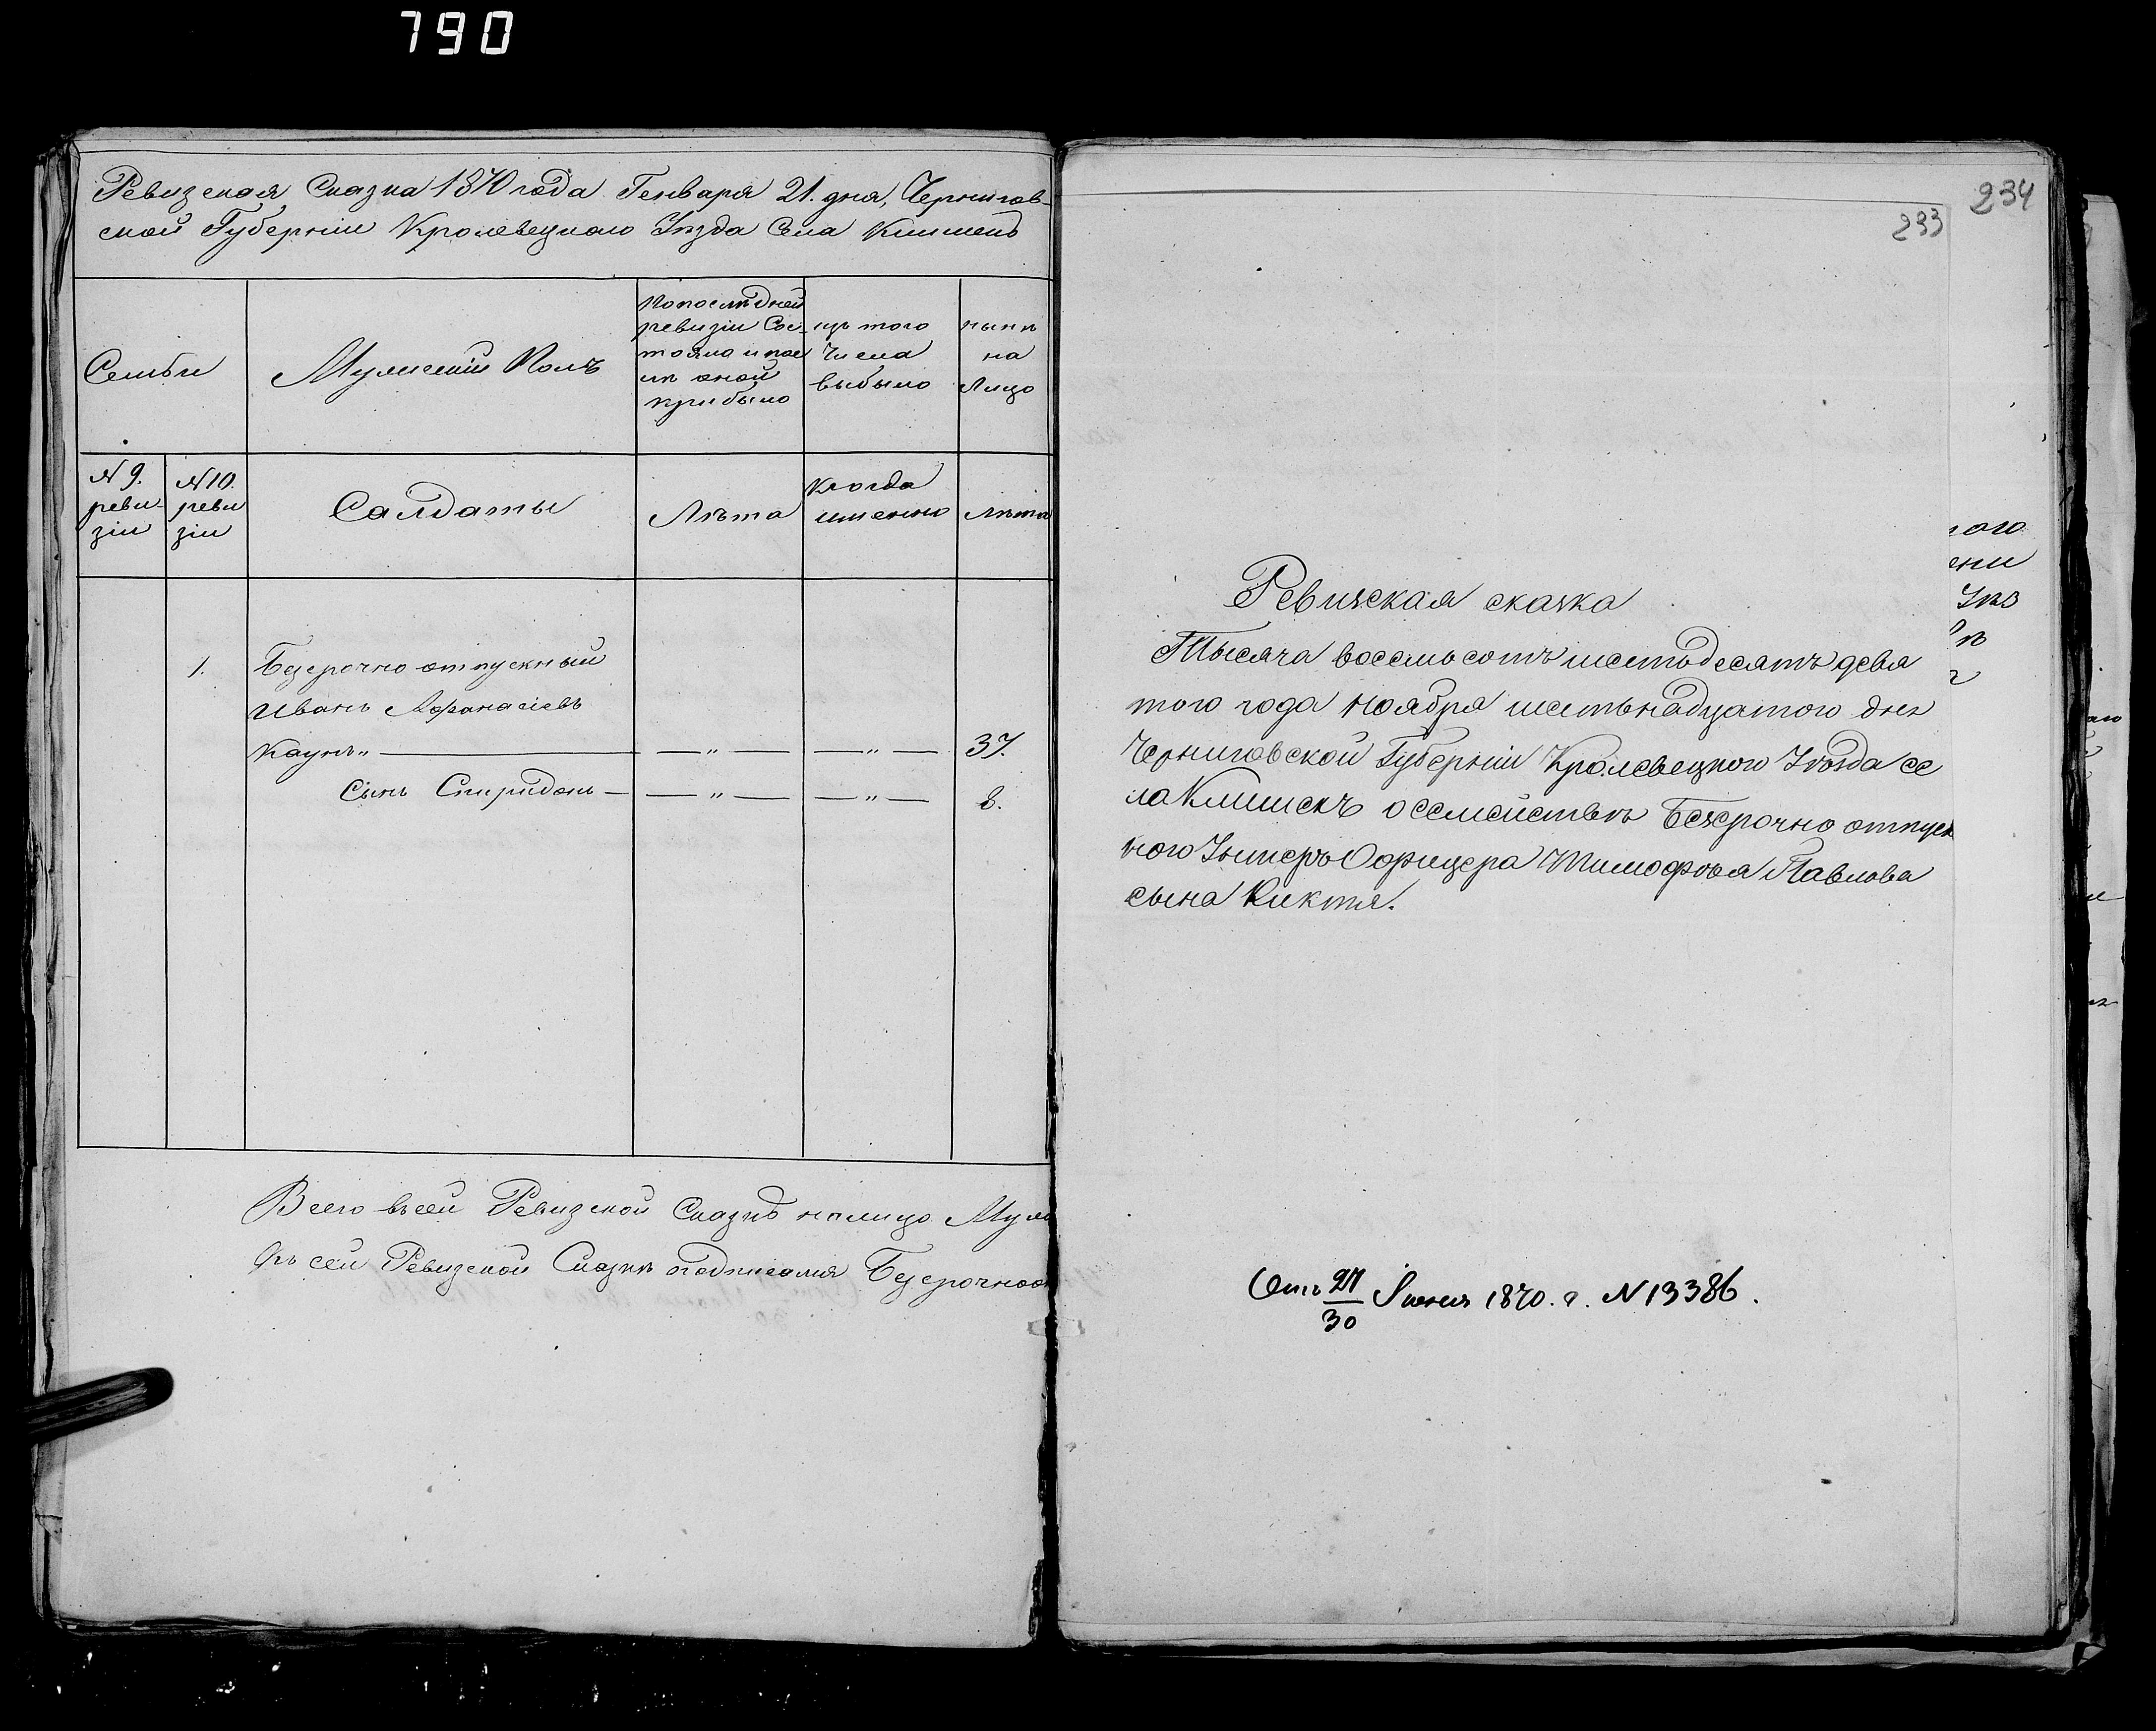 790
Ревизская Сказка 1870 года Генваря 21. дня, Чернигов-
ской Губерніи Кролевецкаго Уѣзда Села Клишекъ
Семьи
Мужескій Полъ
По последней
ревизіи Сос-
тояло и пос
лѣ оной
прибыло
изъ того
Числа
выбыло
нынѣ
на
Лицо
N 9.
реви-
зіи
N 10.
реви
зіи
Салдаты
Лѣта
Когда
именно
Лѣта
1.
Безсрочно отпускный
Иванъ Афанасіевъ
Каунъ „ — — „ — — „ — 37.
Сынъ Спиридонъ — — „ — — „ — 8.
Всего въ сей Ревизской Сказкѣ налицо Муж
Къ сей Ревизской Сказкѣ подписался Безсрочноот
234
233
Ревизская сказка
Тысяча восемьсотъ шестьдесятъ девя
того года ноября шестьнадцатого дня
Черниговской Губерніи Кролевецкого Уѣзда се
ла Клишекъ о семействѣ Безсрочно отпуск
ного Унтеръ Офицера Тимофѣя Павлова
сына Киктя.
ого
ени
Уѣз
Отъ 27/30 Іюня 1870. г. N 13386.